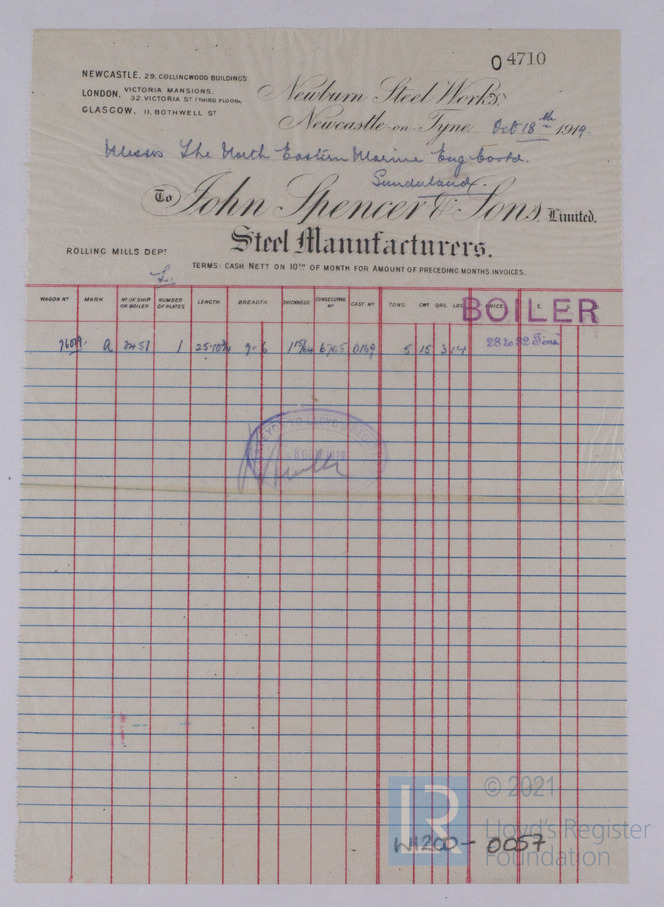 04710
NEWCASTLE, 29, COLLINGWOOD BUILDINGS.
LONDON, VICTORIA MANSIONS.
32, VICTORIA ST (THIRD FLOOR),
GLASGOW, 11, BOTHWELL ST
Newburn Steel Works,
Newcastle-on-Tyne, Oct 18th 1919.
Messrs The North Eastern Marine Eng Co Ltd.
Sunderland.
To John Spencer & Sons, Limited.
Steel Manufacturers.
ROLLING MILLS DEPT
L.
TERMS: CASH NETT ON 10TH OF MONTH FOR AMOUNT OF PRECEDING MONTHS INVOICES.
WAGON No MARK No OF SHIP OR BOILER NUMBER OF PLATES LENGTH. BREADTH. THICKNESS CONSECUTIVE No CAST No TONS. CWT. QRS. LBS. PRICE £
BOILER
a 1 9-6 5 15 3 14 28 to 32 Tons.
© 2021
LR
Lloyd's Register
Foundation
W1200-0057